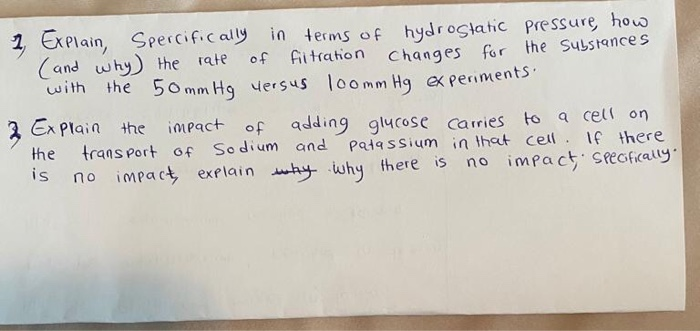 1, Explain, Spercifically in terms of hydrostatic pressure, how
(and why) the rate of filtration changes for the substances
with the 50mmHg versus 100mmHg experiments.
3 Explain the impact of adding glucose carries to a cell on
the transport of Sodium and Patassium in that cell. If there
is no impact, explain why why there is no impact, specifically.